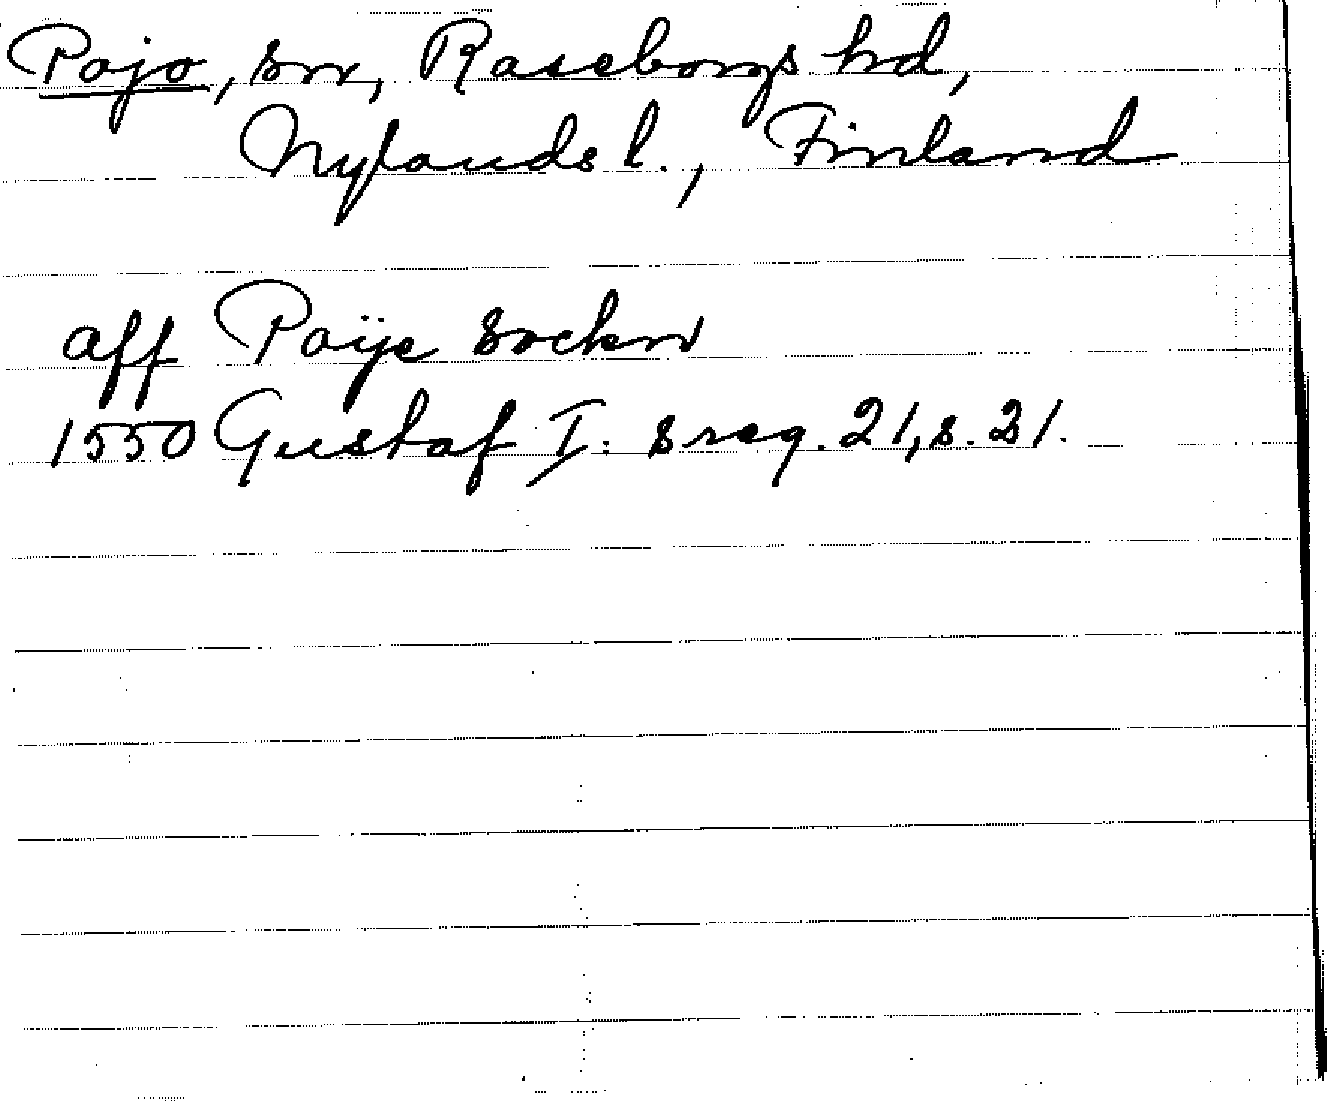 Pojo, sn, Raseborgs hd,
Nylands l., Finland
aff Poije sockn
1550 Gustaf I:s reg. 21, s. 31.